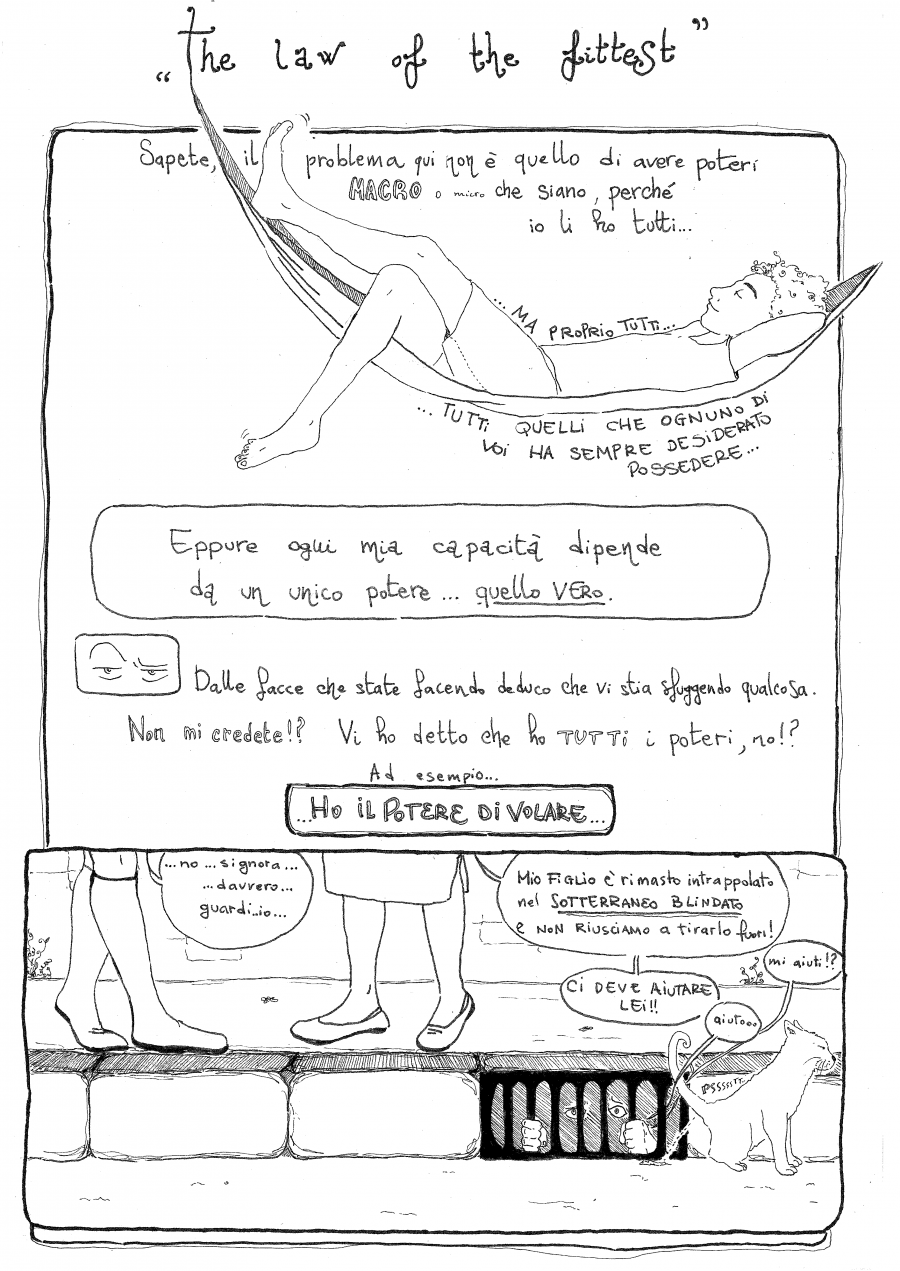 “The law of the fittest”
Sapete, il problema qui non è quello di avere poteri
MACRO o micro che siano, perché
io li ho tutti...
... MA PROPRIO TUTTI...
... TUTTI QUELLI CHE OGNUNO DI
VOI HA SEMPRE DESIDERATO
POSSEDERE...
Eppure ogni mia capacità dipende
da un unico potere ... quello VERO.
Dalle facce che state facendo deduco che vi stia sfuggendo qualcosa.
Non mi credete!? Vi ho detto che ho TUTTI i poteri, no!?
Ad esempio...
...HO IL POTERE DI VOLARE...
...no ...signora...
...davvero...
guardi..io...
MIO FIGLIO è rimasto intrappolato
nel SOTTERRANEO BLINDATO
e NON RIUSCIAMO a tirarlo fuori!
CI DEVE AIUTARE
LEI!!
mi aiuti!?
aiuto...
PSSSSSTT